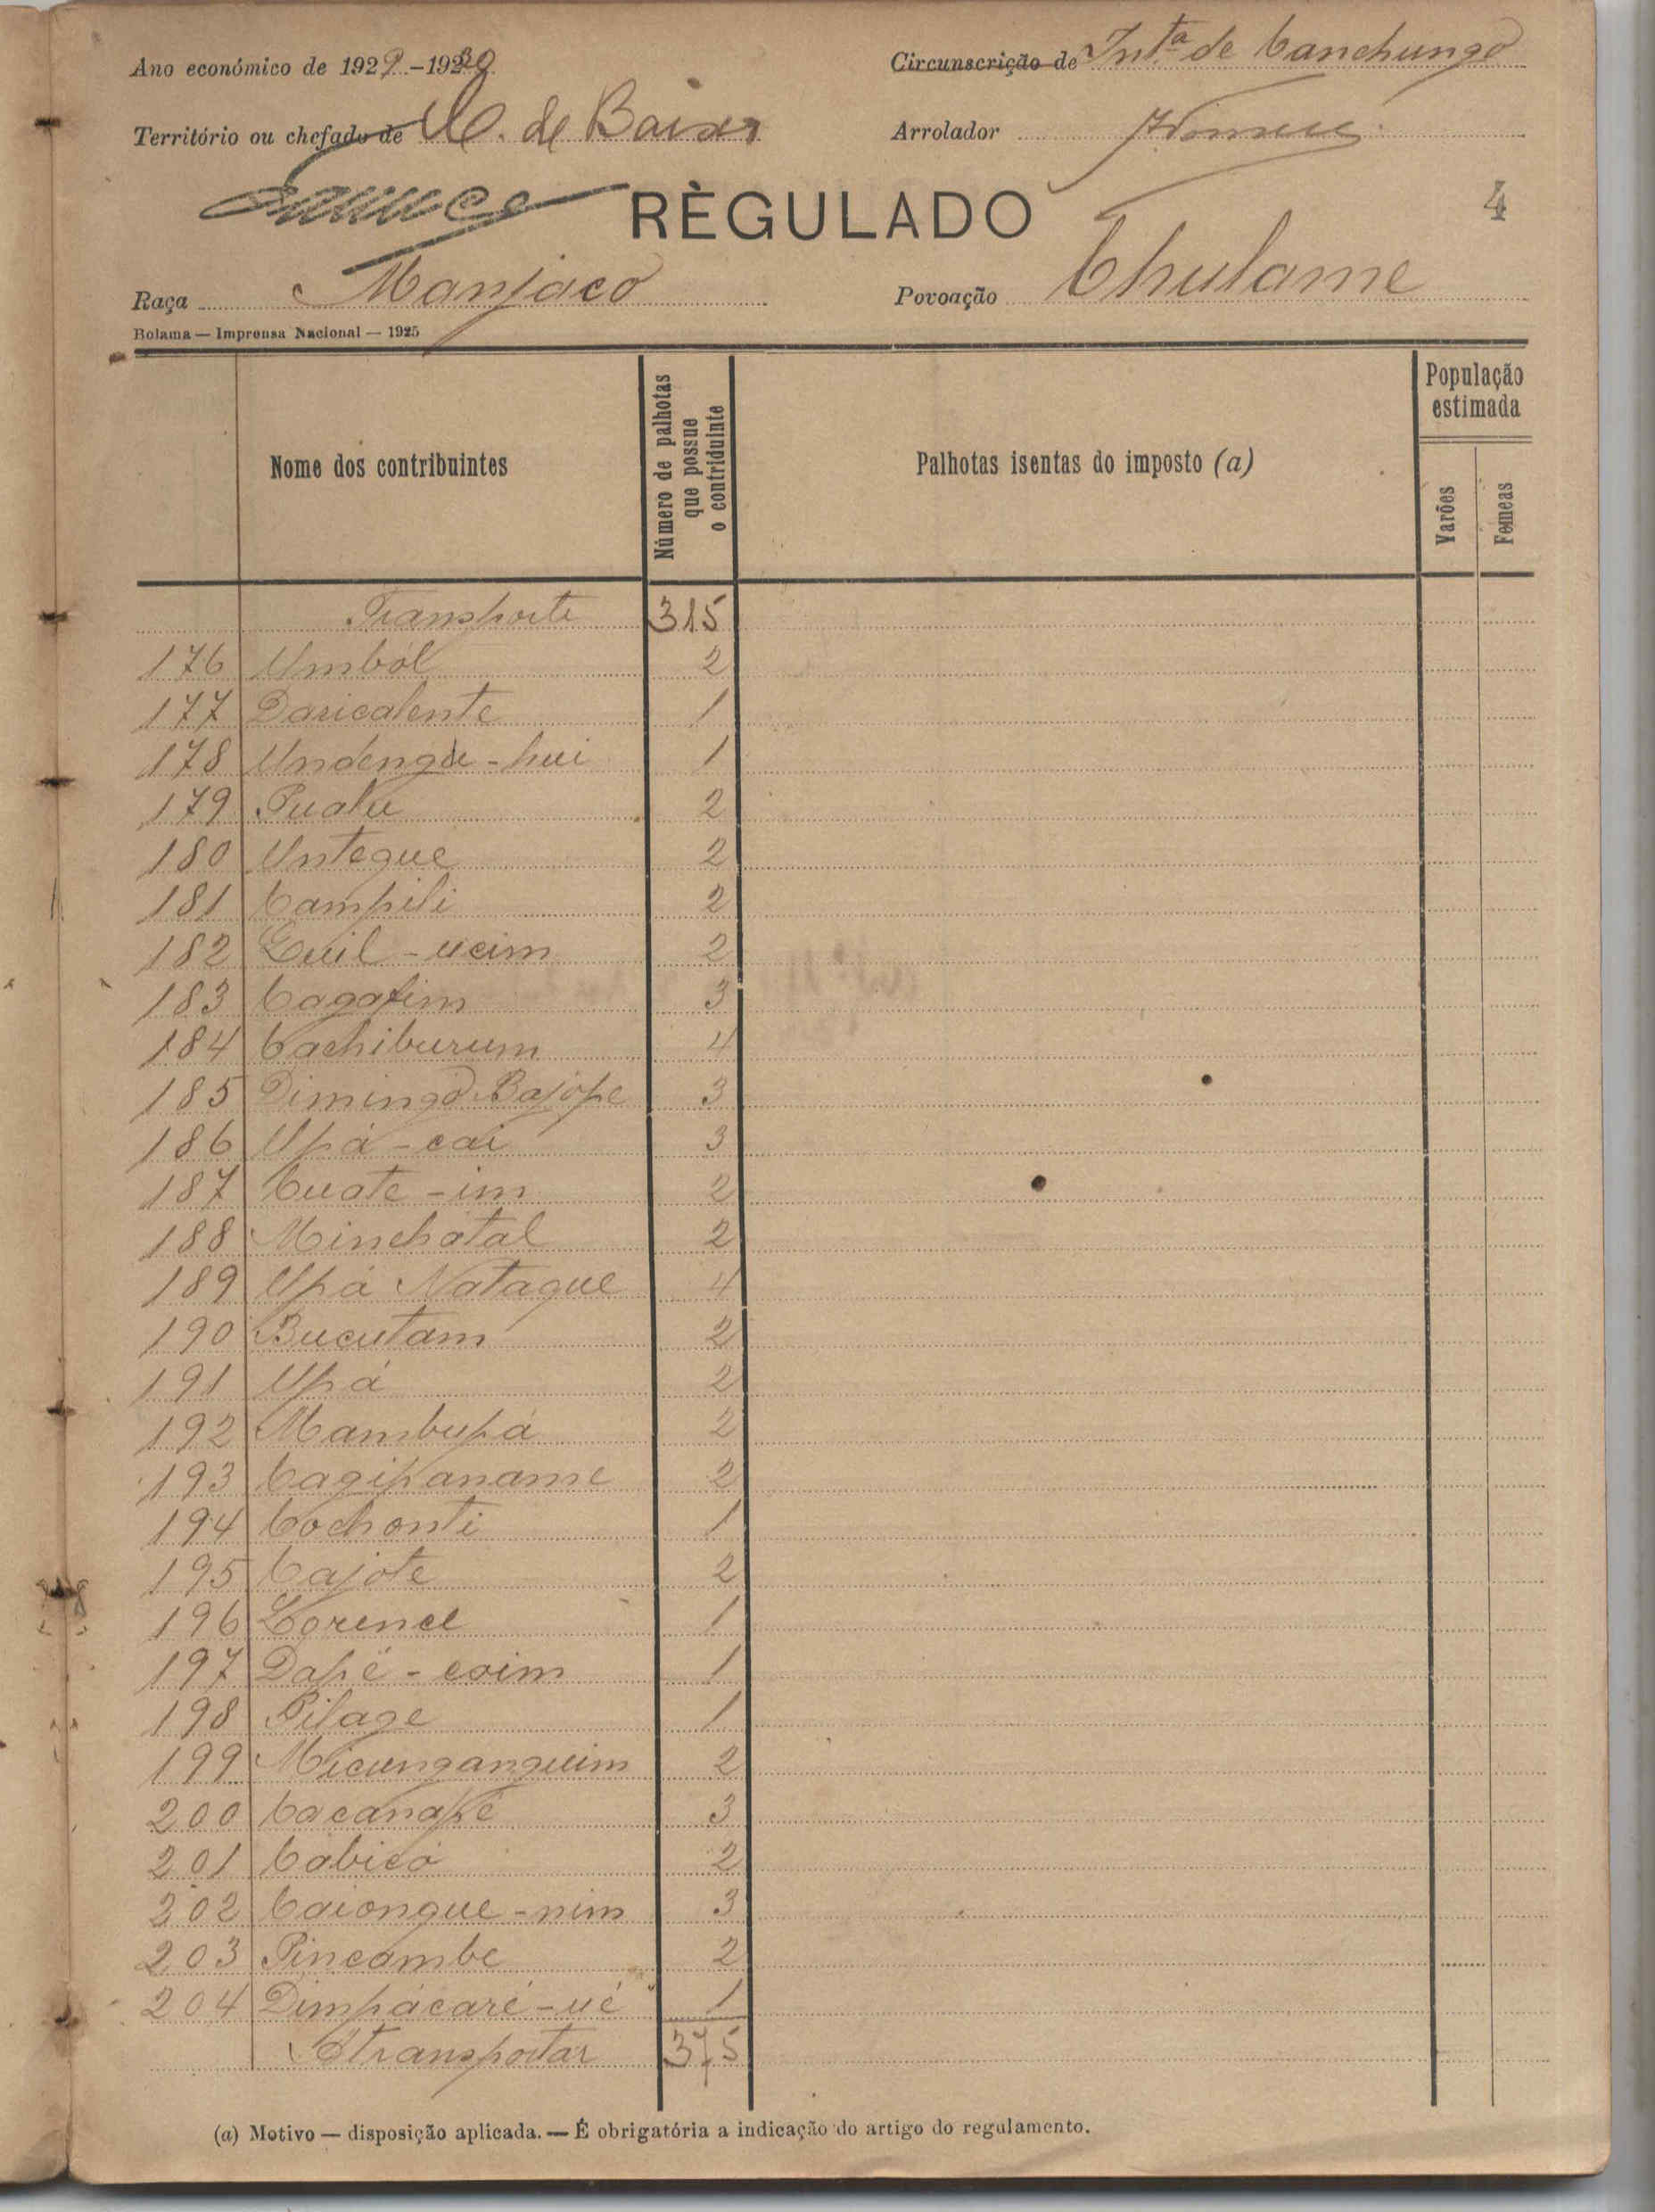 Ano económico de 1929-1930
Circunscrição de Int.ª de Canchungo
Território ou chefado de C. de Baixo
Arrolador
RÈGULADO
4
Raça Manjaco
Povoação Chulame
Bolama — Imprensa Nacional — 1925
Nome dos contribuintes
Número de palhotas que possue o contriduinte
Palhotas isentas do imposto (a)
População estimada
Varões
Fémeas
Transporte 315
176 Umból 2
177 Daricalente 1
178 Undengde-hui 1
179 Pualu 2
180 Untegue 2
181 Campili 2
182 Quil-ucim 2
183 Cagafim 3
184 Cachiburum 4
185 Dimingo Bajópe 3
186 Upá-cai 3
187 Cuate-im 2
188 Minchatal 2
189 Upá Natague 4
190 Bucutam 2
191 Upá 2
192 Mambupá 2
193 Cagipaname 2
194 Cochonti 1
195 Cajote 2
196 Lorence 1
197 Dapé-coim 1
198 Pilage 1
199 Micunganguim 2
200 Cacanapé 3
201 Cabicá 2
202 Caiongue-nim 3
203 Pincambe 2
204 Dimpácaré-ué 1
A transportar 375
(a) Motivo — disposição aplicada. — É obrigatória a indicação do artigo do regulamento.